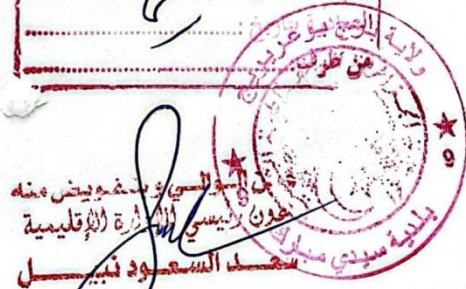 من طرف
ولاية برج بوعريريج
9
بلدية سيدي مبارك
الوالي وبتفويض منه
عون رئيسي للإدارة الإقليمية
سعد السعود نبيل